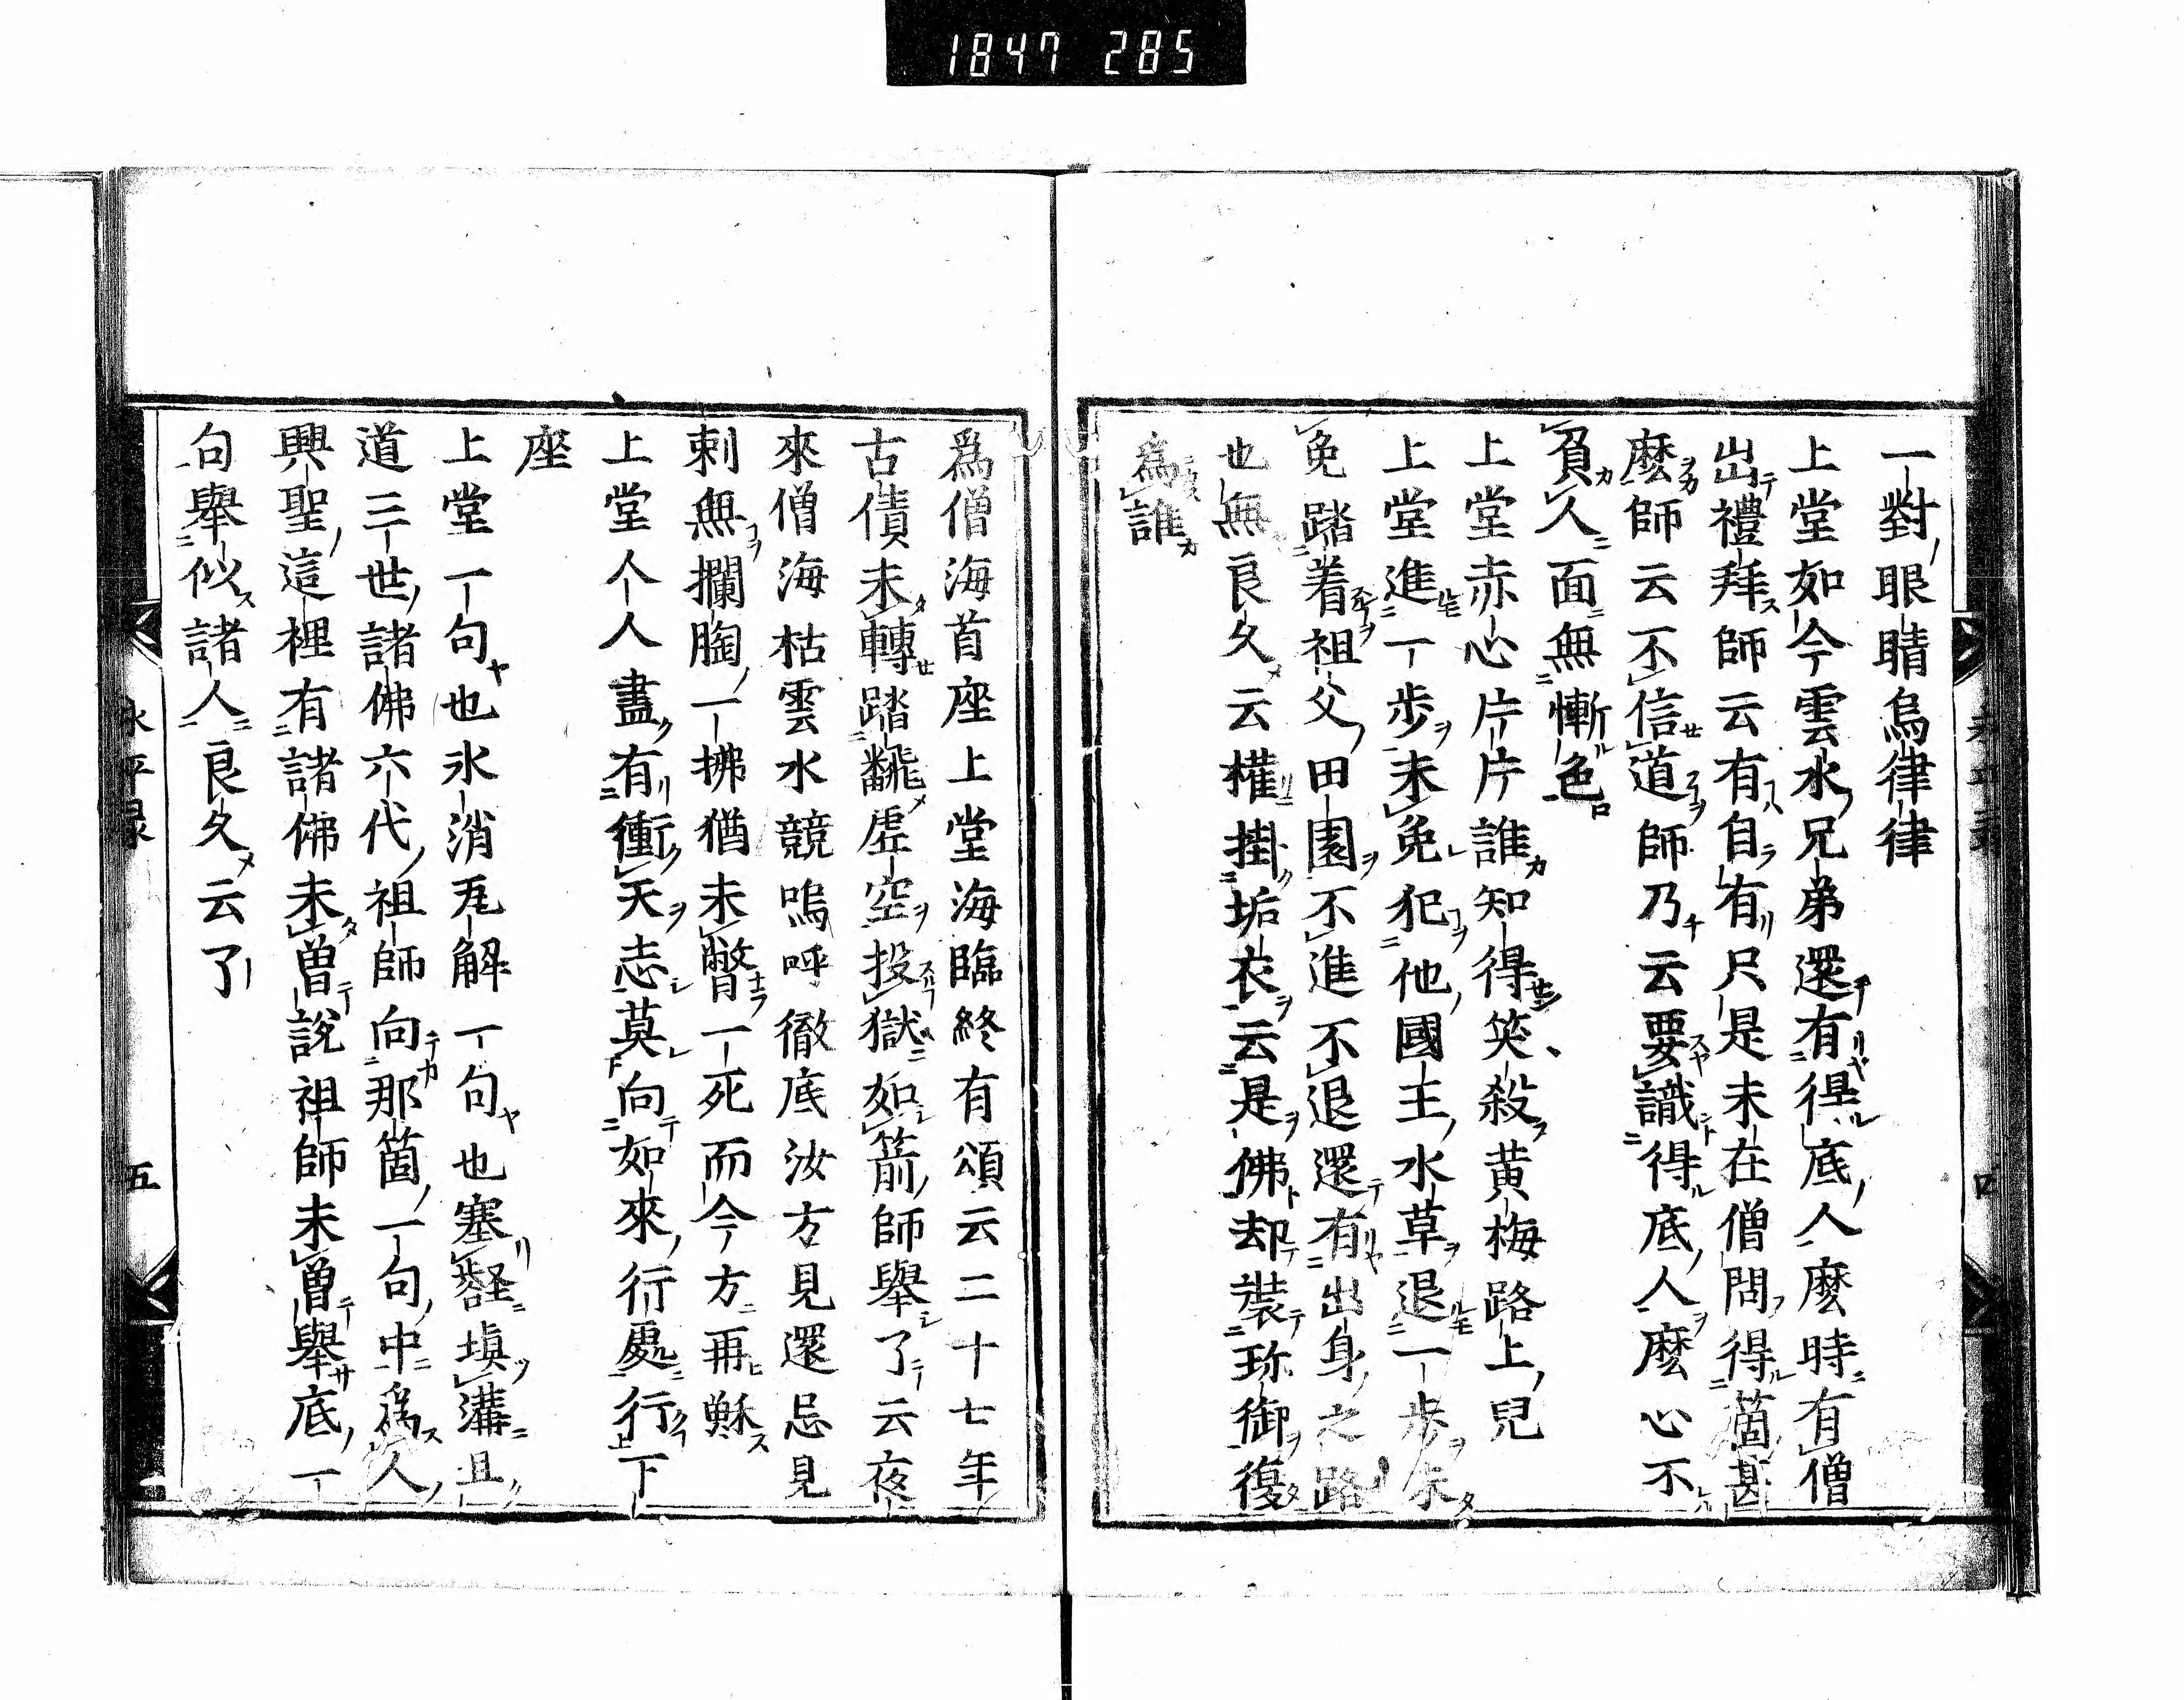 1847 285
一對眼睛烏律律
上堂如今雲水兄弟還有得底人麼時有僧
出禮拜師云有自有只是未在僧問得箇甚
麼師云不信道師乃云要識得底人麼心不
負人面無慚色
上堂赤心片片誰知得笑殺黄梅路上兒
上堂進一步未免犯他國王水草退一步未
免踏着祖父田園不進不退還有出身之路
也無良久云權掛垢衣云是佛却裝珎御復
爲誰
爲僧海首座上堂海臨終有頌云二十七年
古債未轉踏飜虚空投獄如箭師舉了云夜
來僧海枯雲水競嗚呼徹底汝方見還忌見
剌無攔胸一拂猶未瞥一死而今方再穌
上堂人人盡有衝天志莫向如來行處行下
座
上堂一句也氷消瓦解一句也塞壑塡溝且
道三世諸佛六代祖師向那箇一句中爲人
興聖這裡有諸佛未曾說祖師未曾舉底一
句舉似諸人良久云了
永平录
五